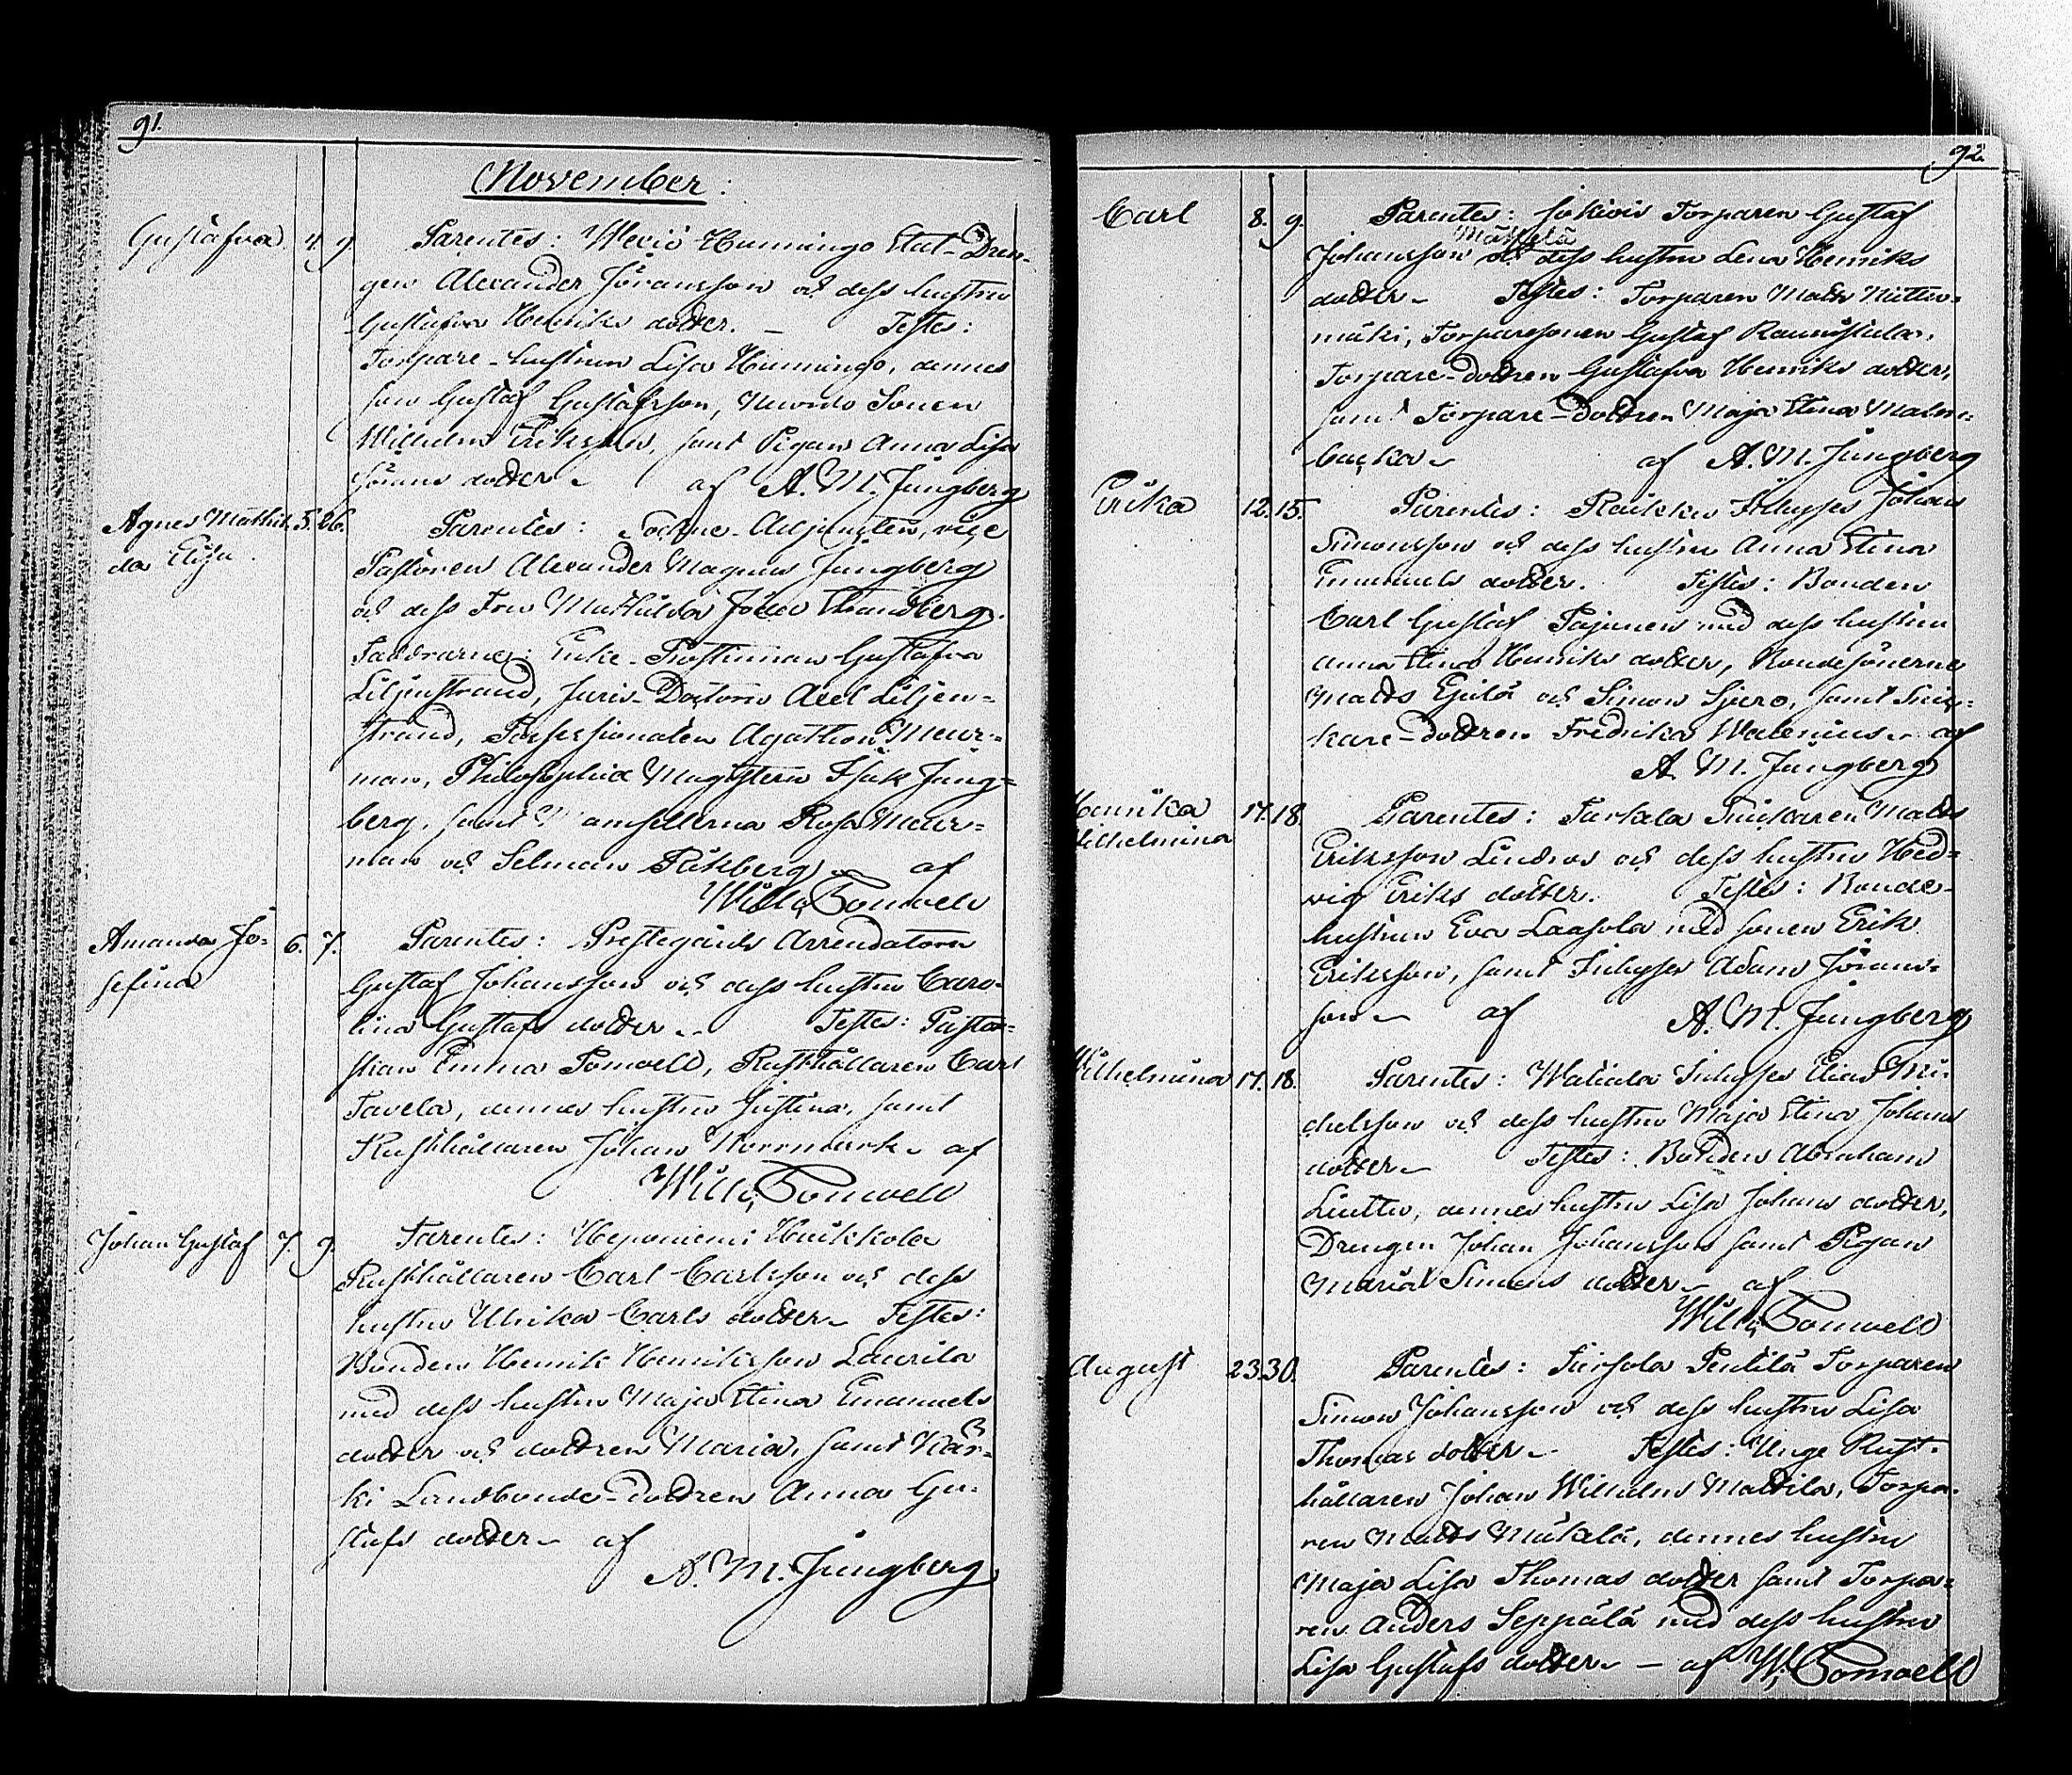 91.
November:
Gustafva 4. 9. Parentes: Hunningo Stat-Dren-
gen Alexander Jöransson och dess hustru
Gustafva Henriks dotter. — Testes:
Torpare-hustrun Lisa Hunningo, dennes
son Gustaf Gustafsson, Sonen
Wilhelm Eriksson, samt Pigan Anna Lisa
Jörans dotter – af A. M. Jungberg
Agnes Mathil- 5. 26. Parentes: Sockne-Adjuncten, vice
da Elisa. Pastoren Alexander Magnus Jungberg
och dess Fru Mathilda född Strandberg.
Faddrarne: Enke-Prostinnan Gustafva
Liljenstrand, Juris-Doctorn Axel Liljen=
strand, Possessionaten Agathon Meur=
man, Philosophiæ Magistern Isak Jung=
berg, samt Mamsellerna Rosa Meur=
man och Selma – af
Wilh. Tomell
Amanda Jo- 6. 7. Parentes: Prestegårds Arrendatorn
sefina Gustaf Johansson och dess hustru Caro-
lina Gustafs dotter – Testes: Pastor=
skan Emma Rusthållaren Carl
Tavela, dennes hustru Justina, samt
Rusthållaren Johan Norrmark – af
Wilh. Tomell
Johan Gustaf 7. 9. Parentes: Heponiemi Huikkola
Rusthållaren Carl Carlsson och dess
hustru Ulrika Carls dotter – Testes:
Bonden Henrik Henriksson Laurila
med dess hustru Maja Stina Emanuels
dotter och dottren Maria, samt Kär-
ki Landbonde-dottren Anna Gu-
stafs dotter – af
A. M. Jungberg
92.
Carl 8. 9. Parentes: Jokiois Torparen Gustaf
Mäkelä
Johansson och dess hustru Lena Henriks
dotter – Testes: Torparen Matts
mäki, Torparesonen Gustaf
Torpare-dottren Gustafva Henriks dotter,
samt Torpare-dottren Maja Stina Malm=
backa – af A. M. Jungberg
Erika 12. 15. Parentes: Raikku Inhyses Johan
Simonsson och dess hustru Anna Stina
Emanuels dotter. Testes: Bonden
Carl Gustaf Pajunen med dess hustru
Anna Stina Henriks dotter, Bondesönerne
Matts och Simon Sjero, samt Snic=
kare-dottren Fredrika Walenius – af
A. M. Jungberg
Henrika 17. 18. Parentes: Snickaren Matts
Wilhelmina Eriksson Lindroos och dess hustru Hed=
vig Eriks dotter. Testes: Bonde-
hustrun Eva Laasola med sonen Erik
Eriksson, samt Inhyses Adam Jörans-
son – af A. M. Jungberg
Wilhelmina 17. 18. Parentes: Inhyses Elias Mi-
chelsson och dess hustru Maja Stina Johans
dotter – Testes: Bonden Abraham
dennes hustru Lisa Johans dotter,
Drengen Johan Johansson samt Pigan
Maria Simons dotter – af
Wilh. Tomell
August 23. 30. Parentes: Sarsola Penttilä Torparen
Simon Johansson och dess hustru Lisa
Thomas dotter – Testes: Unge Rust-
hållaren Johan Wilhelm Mattila, Torpa-
ren Matts Mäkelä, dennes hustru
Maja Lisa Thomas dotter samt Torpa=
ren Anders Seppälä med dess hustru
Lisa Gustafs dotter – — af W. Tomell